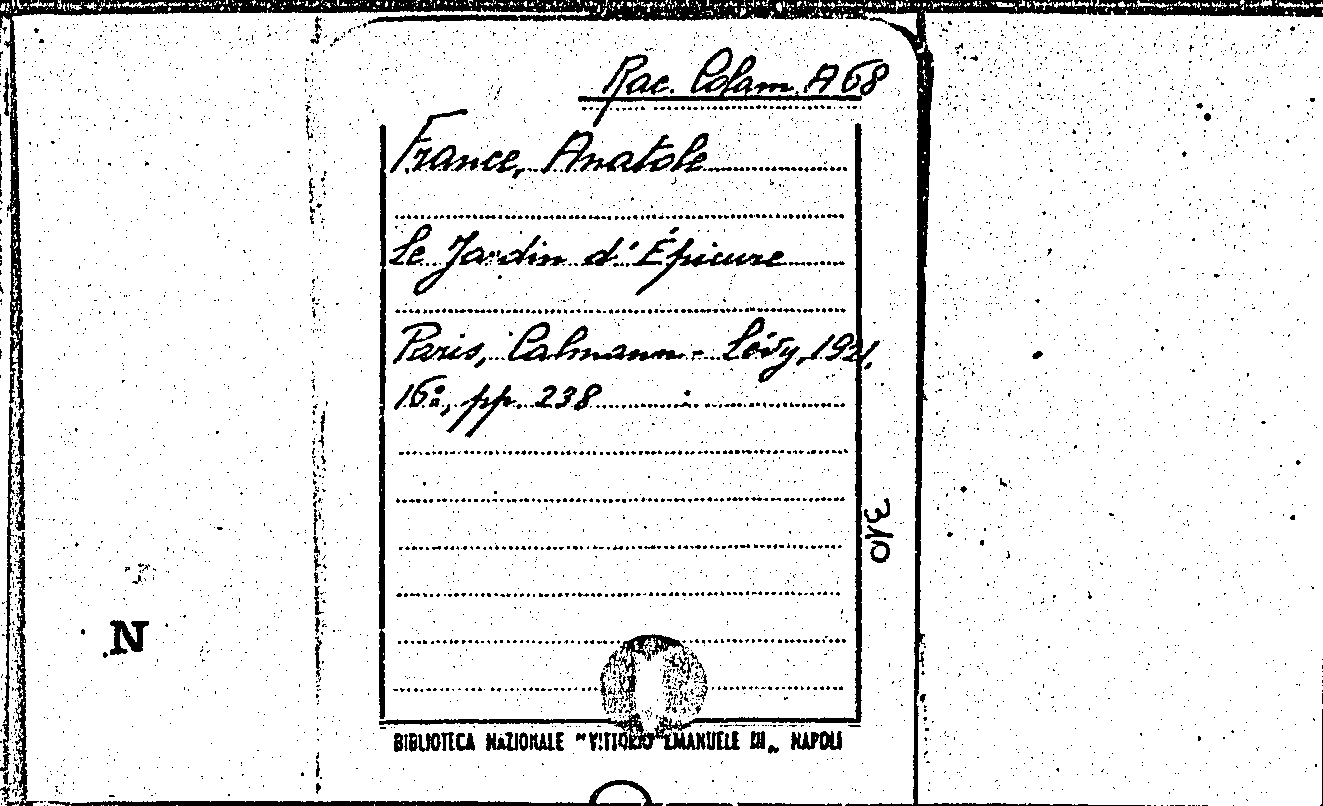 Rac. Colam. A 68
France, Anatole
Le Jardin d'Épicure
Paris, Calmann-Lévy, 1921,
16º, pp. 238
310
N
BIBLIOTECA NAZIONALE "VITTORIO EMANUELE III„ NAPOLI